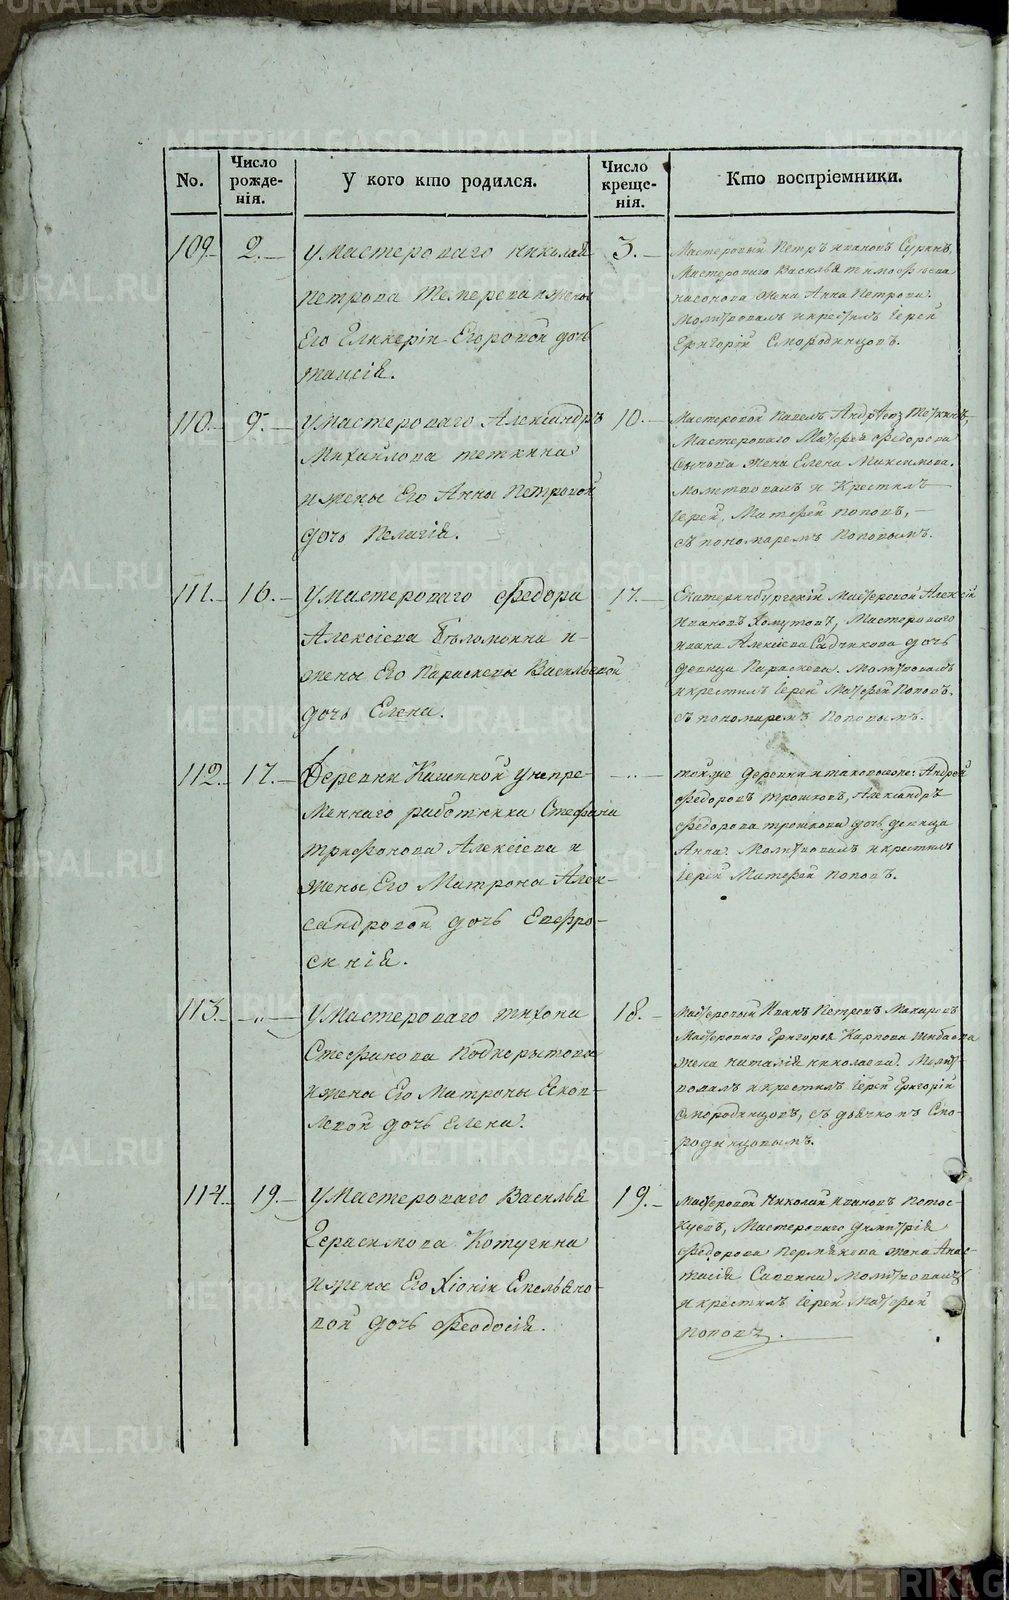 No.
Число рожде-нія.
У кого кто родился.
Число креще-нія.
Кто воспріемники.
109.
2.
У Мастероваго Николая
петрова Теперева и жены
Его Гликеріи Егоровой дочь
таисія.
3.
Мастеровый Петръ Ивановъ Суринъ,
Мастероваго Василья тимофѣева
насонова жена Анна Петрова.
Молитвовалъ и крестилъ Іерей
Григорій Смородинцовъ.
110.
9.
У Мастероваго Александръ
Михайлова теткина
и жены Его Анны Петровой
дочь Пелагія.
10.
Мастеровой Павелъ Теткинъ,
Мастероваго Матфея федорова
Сычова жена Елена Максимова.
Молитвовалъ и Крестилъ
Іерей, Матфей поповъ,
съ пономаремъ Поповымъ.
111.
16.
У Мастероваго федора
Алексіева Бѣломоина и
жены Его Параскевы Васильевой
дочь Елена.
17.
Екатеринбургскій Мастеровой Алексій
Ивановъ Хомутовъ, Мастероваго
ивана Алексіева Садчикова дочь
девица Параскева. Молитвовалъ
и крестилъ Іерей Матфей Поповъ.
съ пономаремъ Поповымъ.
112.
17.
Деревни Калиной у непре-
меннаго работника Стефана
трифонова Алексіева и
жены Его Матроны Алек-
сандровой дочь Евфро-
синія.
-..-
тойже деревни Андрей
федоровъ трошковъ, Александръ
федорова трошкова дочь девица
Анна. Молитвовалъ и крестилъ
Іерей Матфей поповъ.
113.
-..-
У Мастероваго тихона
Стефанова Подкорытова
и жены Его Матроны
дочь Елена.
18.
Мастеровый Иванъ Петровъ Макаровъ
Мастероваго Григорья Карпова
жена наталія николаева. Молит-
вовалъ и крестилъ Іерей Григорій
Смородинцовъ, съ дьячковъ Смо-
родинцовымъ.
114.
19.
У Мастероваго Василья
Герасимова Котугина
и жены Его Хіоніи Емельяно-
вой дочь Феодосія.
19.
Мастеровой Николай Ивановъ Потос-
куевъ, Мастероваго димитрія
федорова Пермякова жена Анас-
тасія Савина Молитвовалъ
и крестилъ Іерей Матфей
поповъ.
METRIKI.GASO-URAL.RU